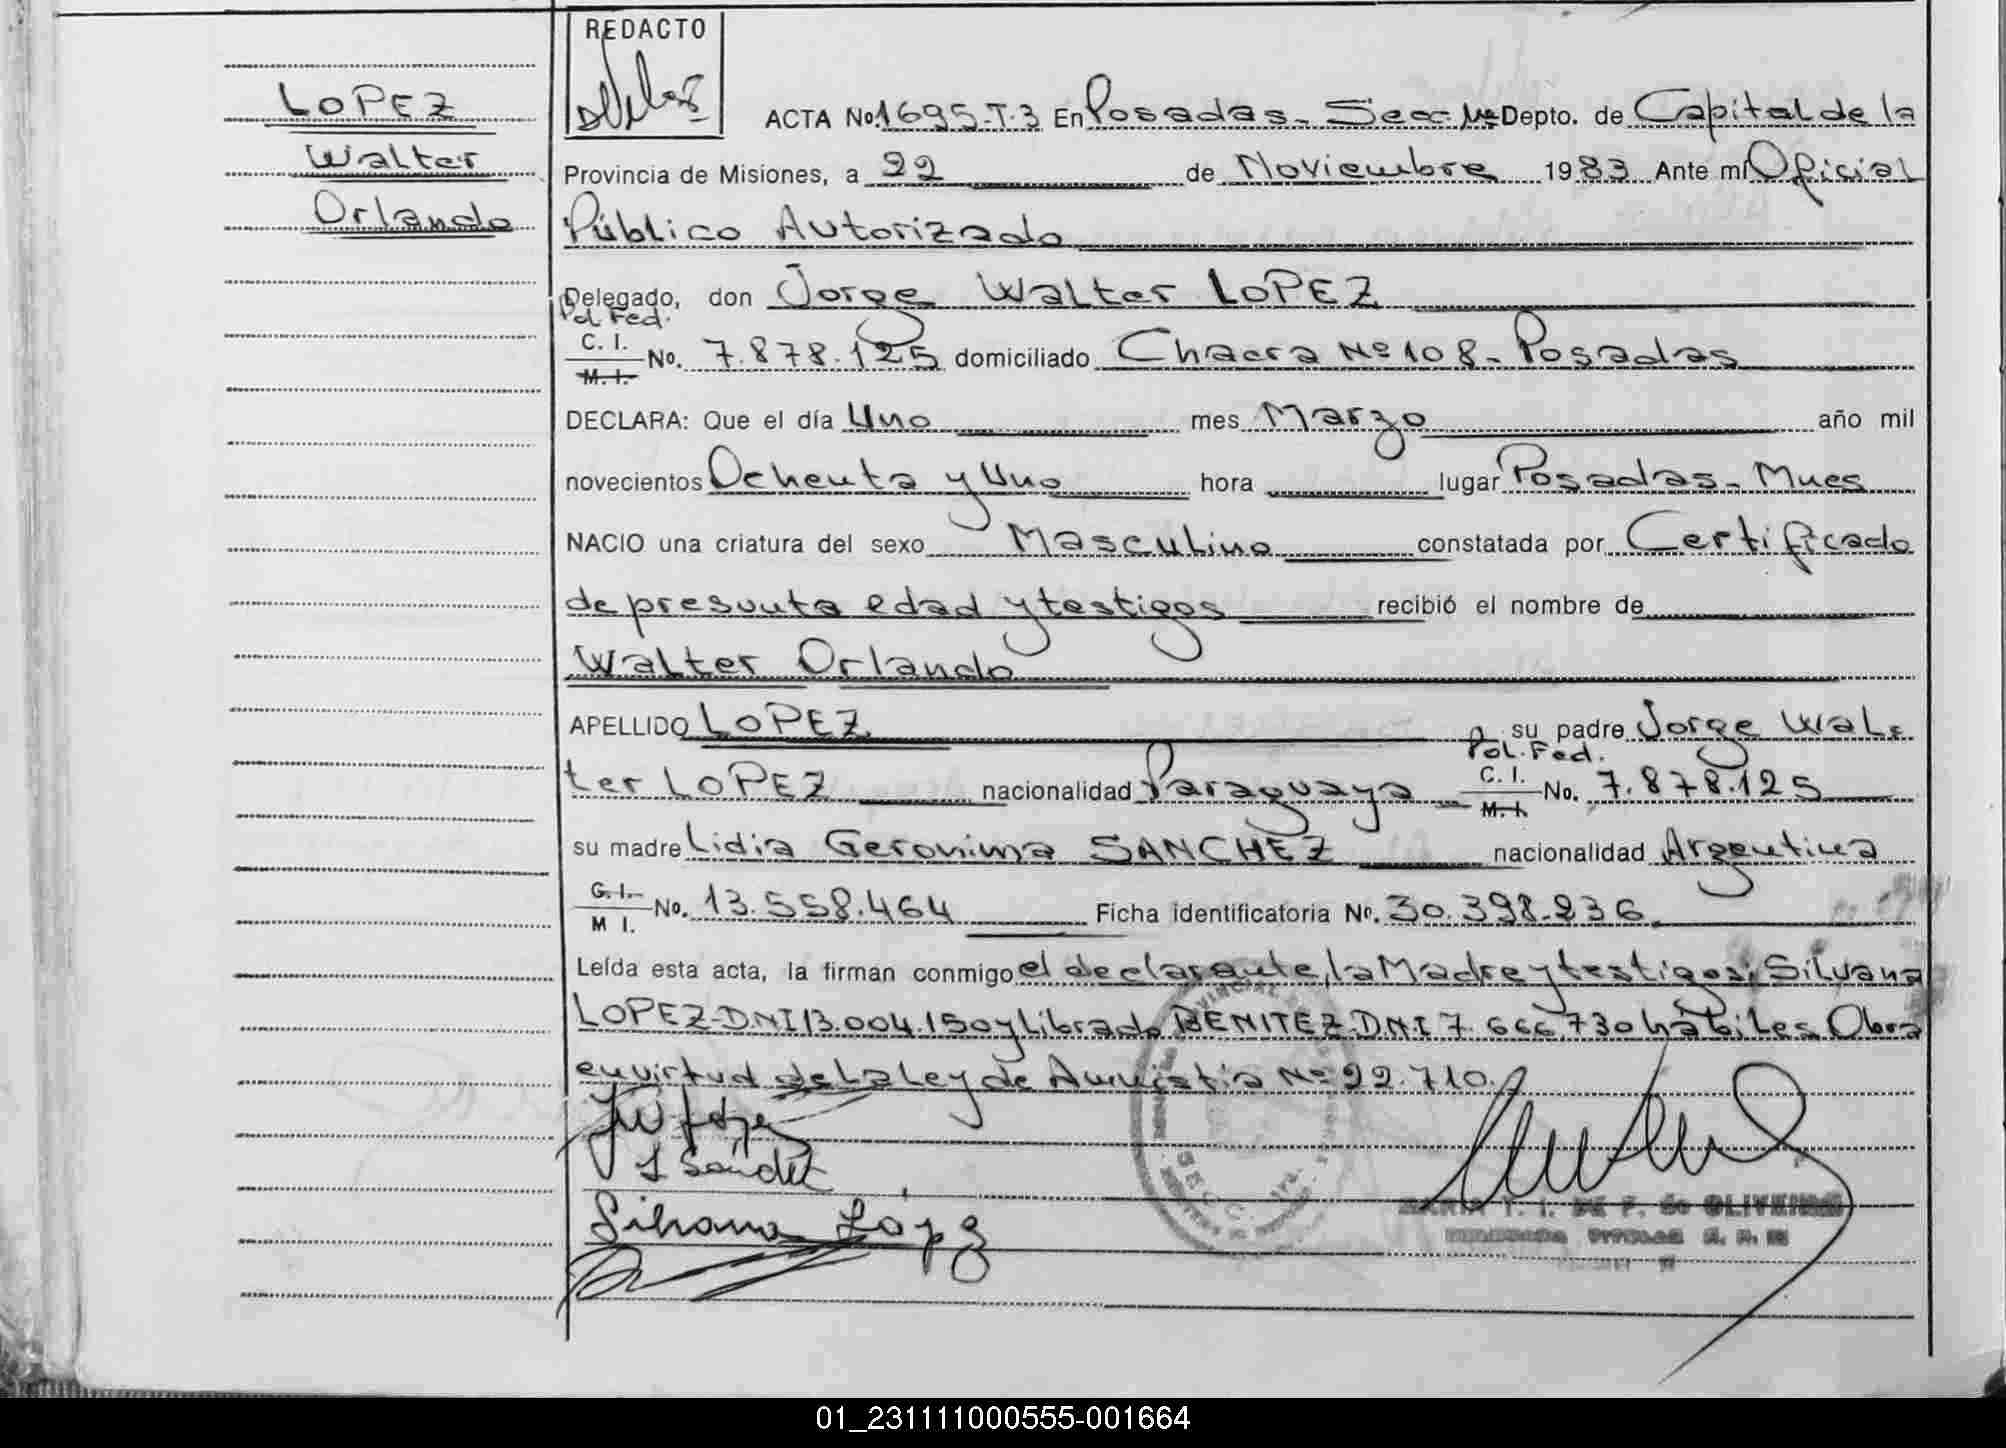 REDACTO
LOPEZ
Walter
Orlando
ACTA No. 1695-T.3 En Posadas - Secc. 1a Depto. de Capital de la
Provincia de Misiones, a 22 de Noviembre 1983 Ante mí Oficial
Público Autorizado
Delegado, don Jorge Walter LOPEZ
Pol Fed.
C. I.
M. I. No. 7.878.125 domiciliado Chacra No 108 - Posadas
DECLARA: Que el día Uno mes Marzo año mil
novecientos Ochenta y Uno hora lugar Posadas - Mnes
NACIO una criatura del sexo Masculino constatada por Certificado
de presunta edad y testigos recibió el nombre de
Walter Orlando
APELLIDO LOPEZ su padre Jorge Wal-
Pol. Fed.
ter LOPEZ nacionalidad Paraguaya C. I. M. I. No. 7.878.125
su madre Lidia Geronima SANCHEZ nacionalidad Argentina
C. I.
M I. No. 13.558.464 Ficha identificatoria No. 30.398.236
Leída esta acta, la firman conmigo el declarante, la Madre y testigos: Silvana
LOPEZ - DNI 13.004.150 y Librado BENITEZ - D.N.I 7.666.730 hábiles. Obra
en virtud de la Ley de Amnistia No 22.710.
JW López
L Sanchez
Silvana López
MARIA T. I. DE F. de OLIVEIRA
01_231111000555-001664